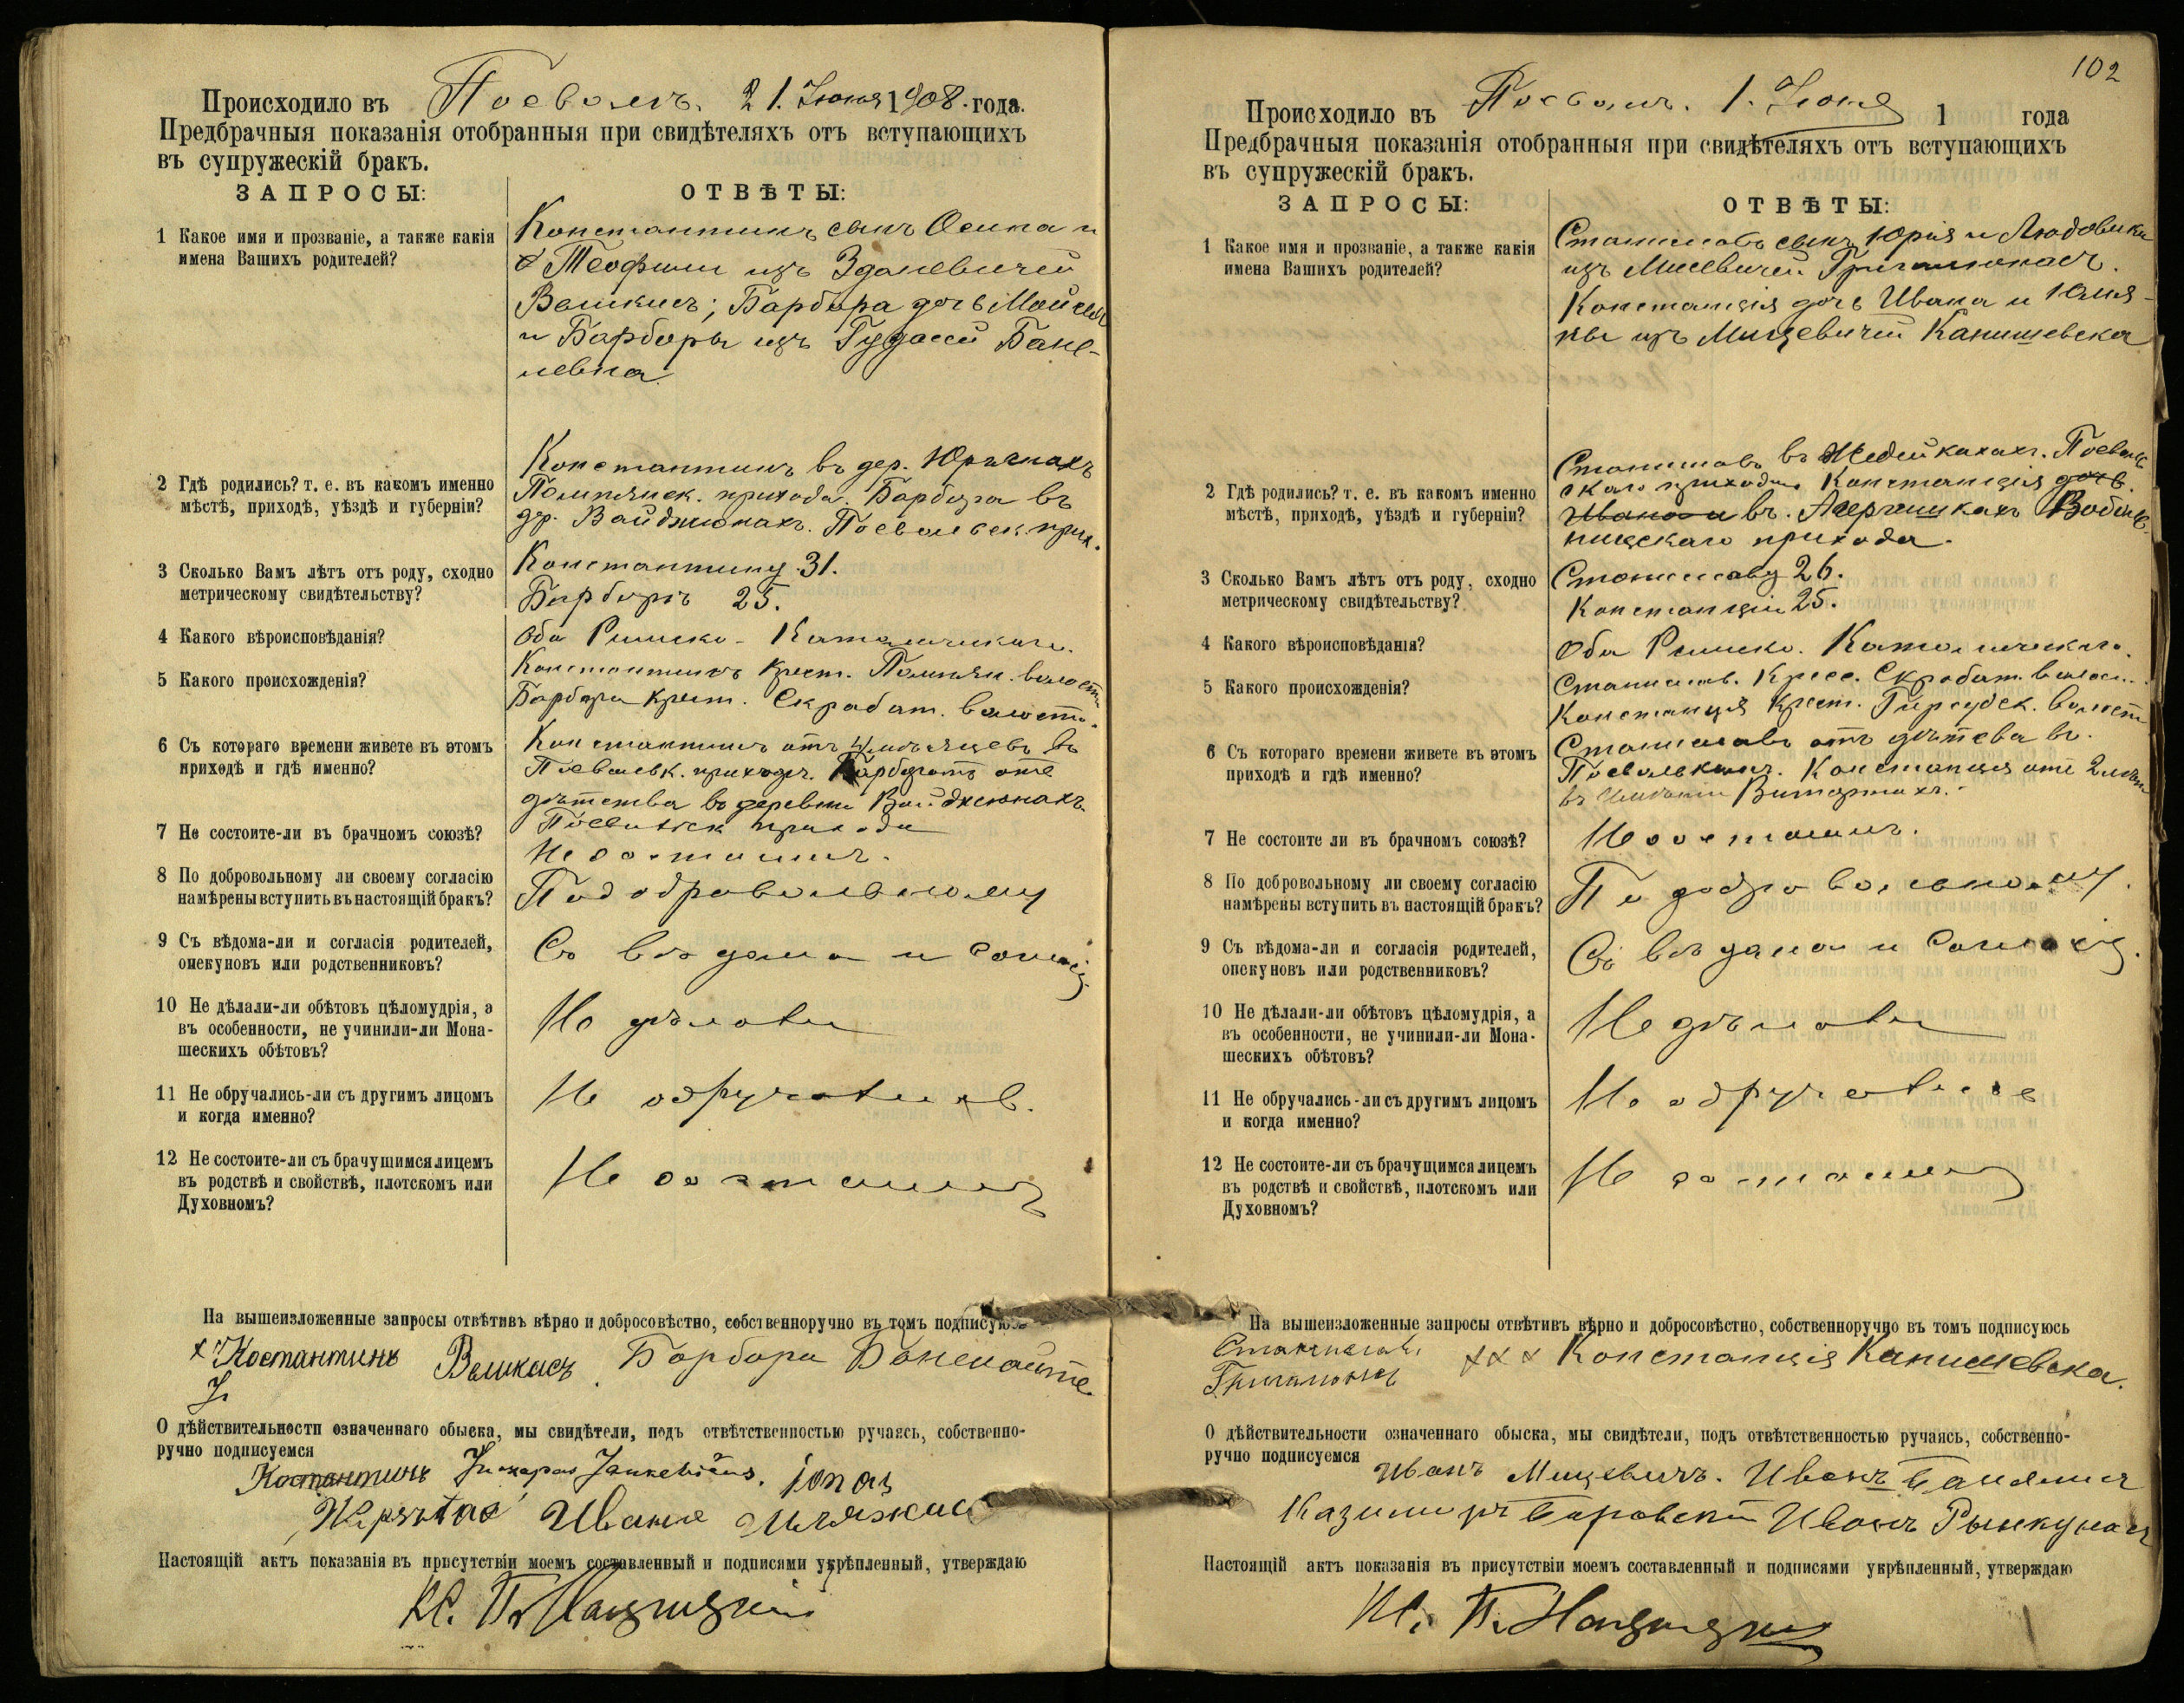 Происходило въ Поеволь. 21. Іюня 1908. года.
Предбрачныя показанія отобранныя при свидѣтеляхъ отъ вступающихъ
въ супружескій бракъ.
ЗАПРОСЫ:
ОТВѢТЫ:
1 Какое имя и прозваніе, а также какія
имена Вашихъ родителей?
Константинъ сынъ Осипа и
Теофили изъ Здановичей
Велькисъ; Барбара дочь
и Барборы изъ Бане-
левна
2 Гдѣ родились? т. е. въ какомъ именно
мѣстѣ, приходѣ, уѣздѣ и губерніи?
Константинъ въ дер.
Помпянск. прихода. Барбара въ
дер. Вайджюнахъ. Поевольск. прих.
3 Сколько Вамъ лѣтъ отъ роду, сходно
метрическому свидѣтельству?
Константину 31.
Барборѣ 25.
4 Какого вѣроисповѣданія?
Оба Римско-Католическаго.
5 Какого происхожденія?
Константинъ крест. Помпян. волости
Барбара крест. Скрабат. волости.
6 Съ котораго времени живете въ этомъ
приходѣ и гдѣ именно?
Константинъ отъ въ
Поевольск. приходѣ. отъ
дѣтства въ деревни Вайджюнахъ
Поевольск прихода
7 Не состоите-ли въ брачномъ союзѣ?
Не состоимъ.
8 По добровольному ли своему согласію
намѣрены вступить въ настоящій бракъ?
По добровольному
9 Съ вѣдома-ли и согласія родителей,
опекуновъ или родственниковъ?
Съ вѣдома и согласія
10 Не дѣлали-ли обѣтовъ цѣломудрія, а
въ особенности, не учинили-ли Мона-
шескихъ обѣтовъ?
Не дѣлали
11 Не обручались-ли съ другимъ лицомъ
и когда именно?
Не обручались.
12 Не состоите-ли съ брачущимся лицемъ
въ родствѣ и свойствѣ, плотскомъ или
Духовномъ?
Не состоимъ
На вышеизложенные запросы отвѣтивъ вѣрно и добросовѣстно, собственноручно въ томъ подписуюсь
Костантинъ Велькисъ Барбора Баненайте
О дѣйствительности означеннаго обыска, мы свидѣтели, подъ отвѣтственностью ручаясь, собственно-
ручно подписуемся
Костантинъ Jankevičius.
Иванъ
Настоящій актъ показанія въ присутствіи моемъ составленный и подписями укрѣпленный, утверждаю
Кс. П.
102
Происходило въ Поеволь. 1. Іюня 1 года
Предбрачныя показанія отобранныя при свидѣтеляхъ отъ вступающихъ
въ супружескій бракъ.
ЗАПРОСЫ:
ОТВѢТЫ:
1 Какое имя и прозваніе, а также какія
имена Вашихъ родителей?
Станиславъ сынъ Юрія и Людовики
изъ Мисевичей Григалюнасъ.
Констанція дочь Ивана и Юлія-
ны изъ Мицевичей Канишевска
2 Гдѣ родились? т. е. въ какомъ именно
мѣстѣ, приходѣ, уѣздѣ и губерніи?
Станиславъ въ Жедейкахахъ. Поеволь-
скаго прихода Констанція дочь
Ивана и въ.
прихода.
3 Сколько Вамъ лѣтъ отъ роду, сходно
метрическому свидѣтельству?
Станиславу 26.
Констанціи 25.
4 Какого вѣроисповѣданія?
Оба Римско. Католическаго.
5 Какого происхожденія?
Станислав. Крес. Скрабат. волост.
Констанція крест. волости
6 Съ котораго времени живете въ этомъ
приходѣ и гдѣ именно?
Станиславъ отъ дѣтства въ.
Констанція отъ 2 лѣтъ
въ
7 Не состоите ли въ брачномъ союзѣ?
Не состоимъ.
8 По добровольному ли своему согласію
намѣрены вступить въ настоящій бракъ?
По добровольному.
9 Съ вѣдома-ли и согласія родителей,
опекуновъ или родственниковъ?
Съ вѣдома и согласія.
10 Не дѣлали-ли обѣтовъ цѣломудрія, а
въ особенности, не учинили-ли Мона-
шескихъ обѣтовъ?
Не дѣлали
11 Не обручались-ли съ другимъ лицомъ
и когда именно?
Не обручались
12 Не состоите-ли съ брачущимся лицемъ
въ родствѣ и свойствѣ, плотскомъ или
Духовномъ?
Не состоимъ
На вышеизложенные запросы отвѣтивъ вѣрно и добросовѣстно, собственноручно въ томъ подписуюсь
Станиславъ ххх Констанція Канишевска.
Григалюнасъ
О дѣйствительности означеннаго обыска, мы свидѣтели, подъ отвѣтственностью ручаясь, собственно-
ручно подписуемся
Иванъ Мицевичъ. Иванъ
Казимиръ Иванъ
Настоящій актъ показанія въ присутствіи моемъ составленный и подписями укрѣпленный, утверждаю
Кс. П.